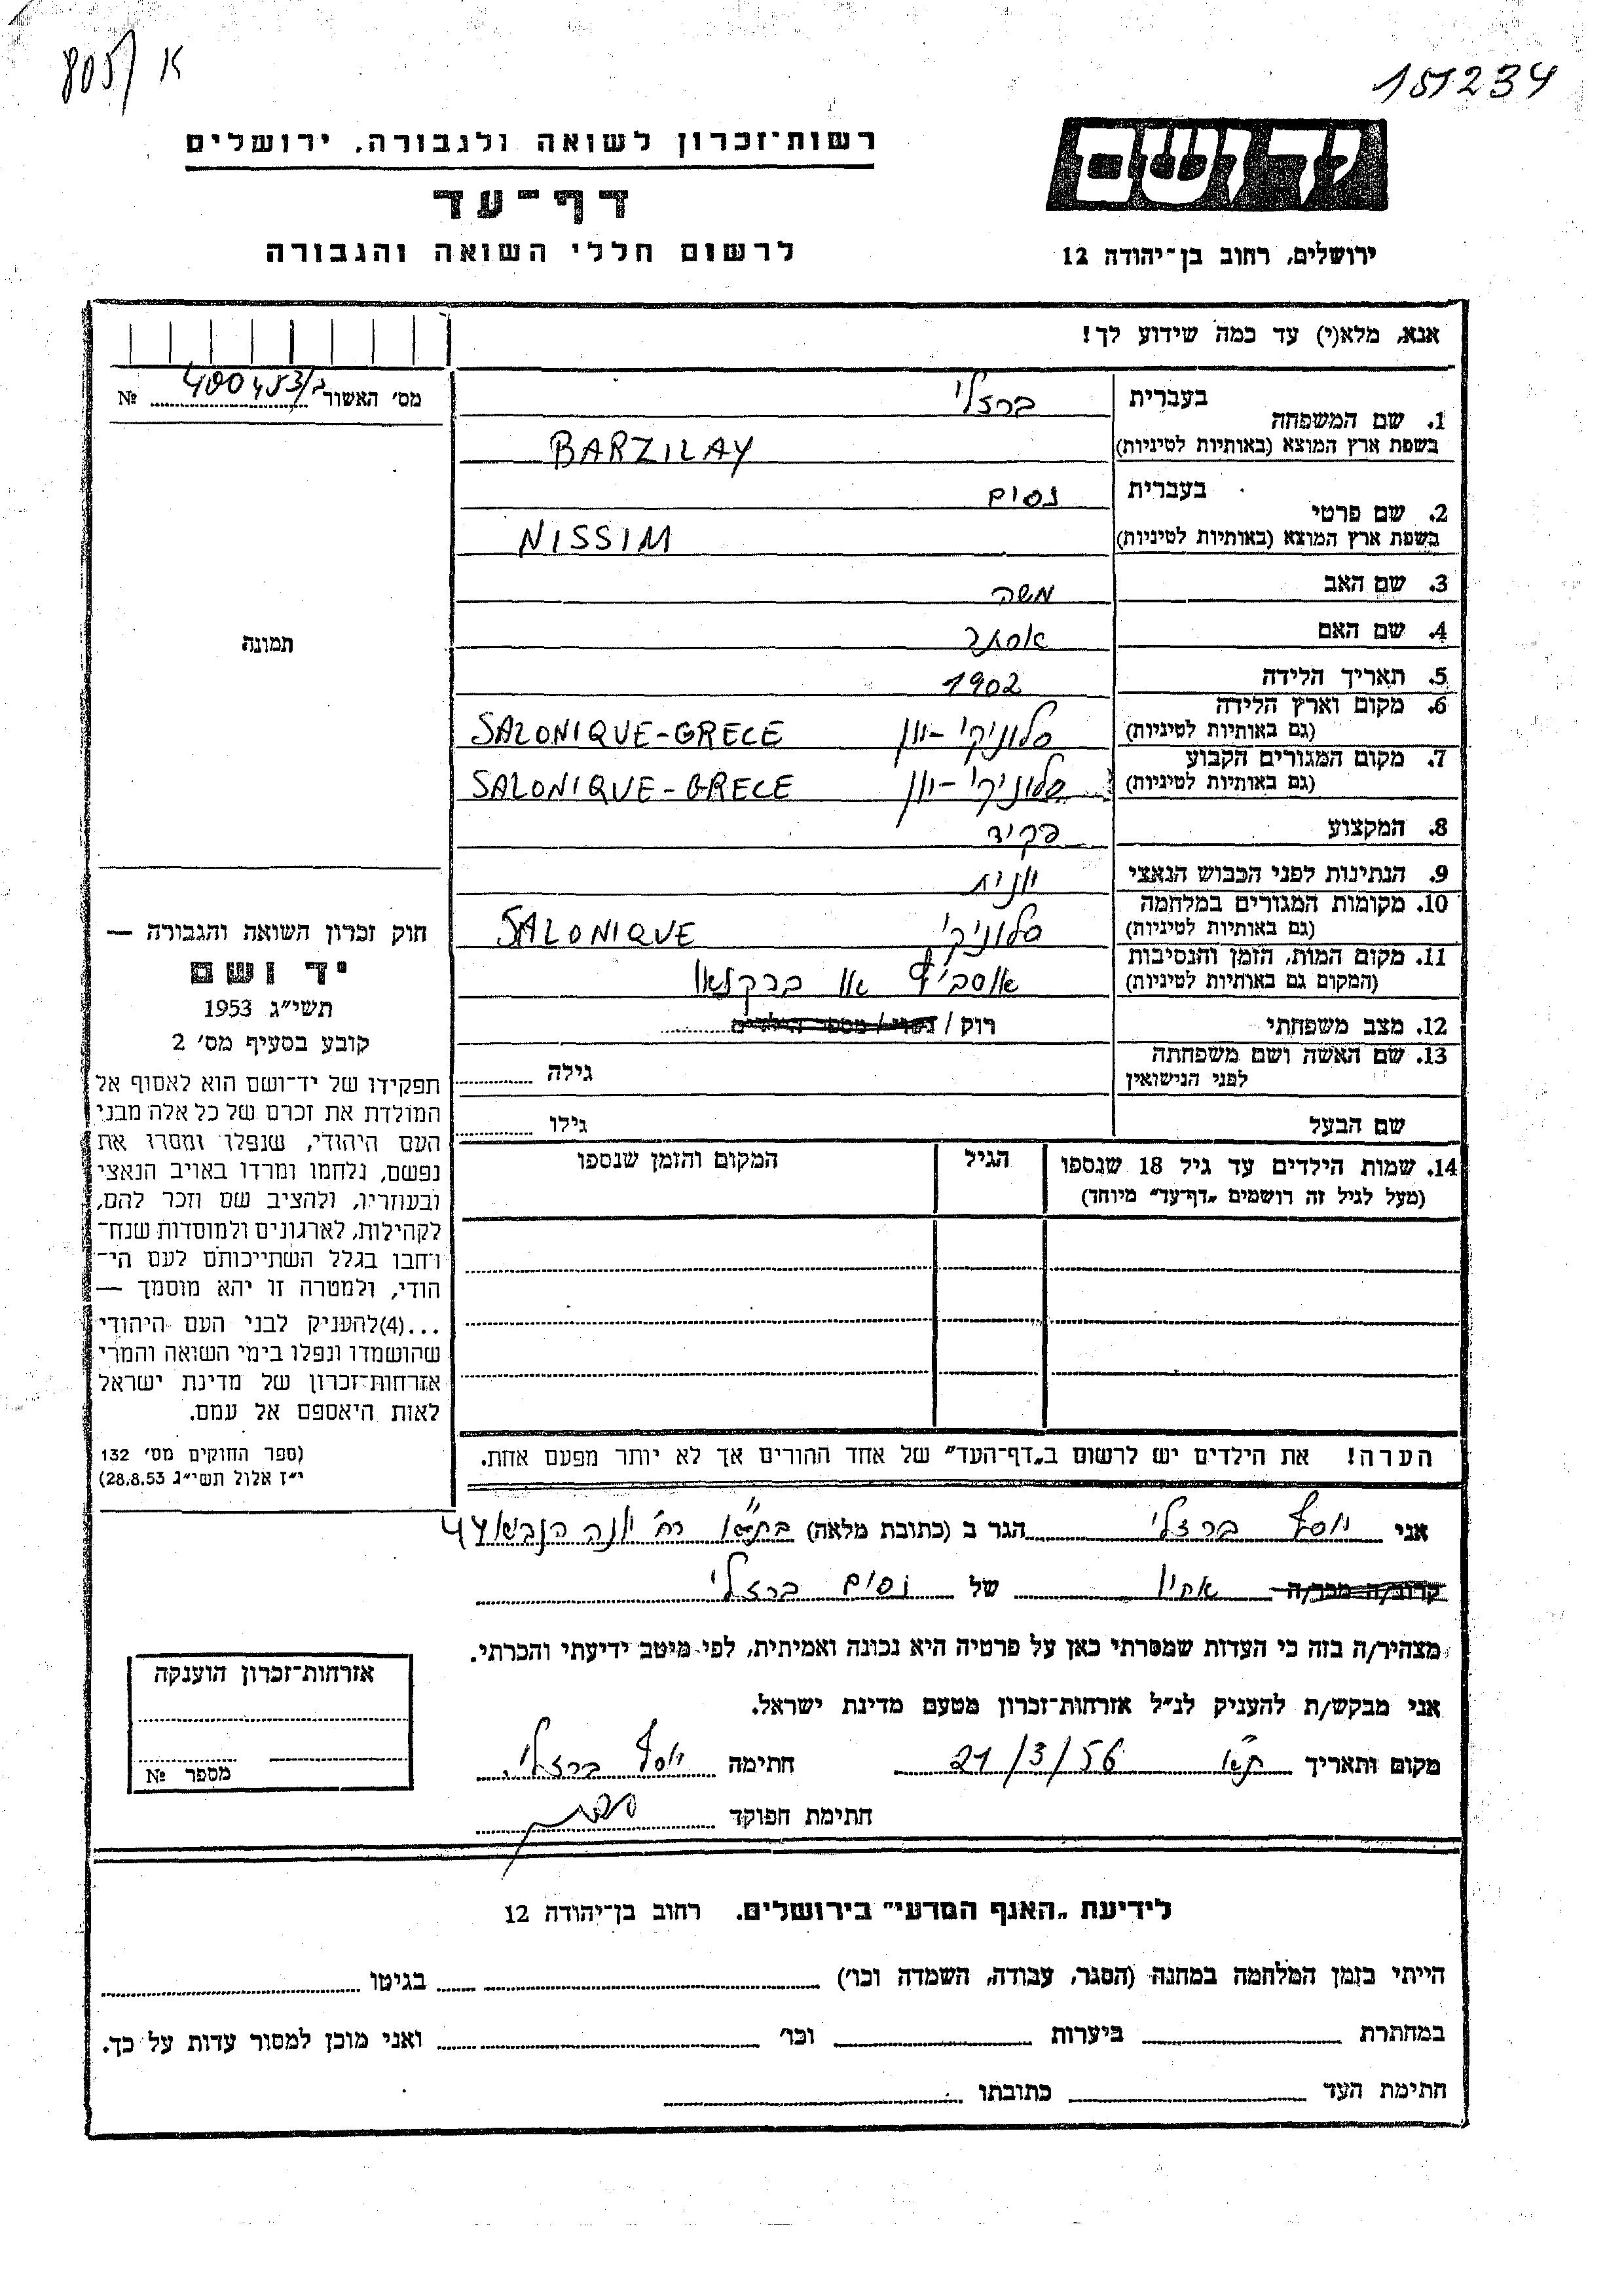 805/ א
151234
יד ושם
ירושלים, רחוב בן־יהודה 12
רשות־זכרון לשואה ולגבורה, ירושלים
דף־עד
לרשום חללי השואה והגבורה
אנא, מלא(י) עד כמה שידוע לך!
1. שם המשפחה בעברית ברזלי
בשפת ארץ המוצא (באותיות לטיניות) BARZILAY
2. שם פרטי בעברית נסים
בשפת ארץ המוצא (באותיות לטיניות) NISSIM
3. שם האב משה
4. שם האם אסתר
5. תאריך הלידה 1902
6. מקום וארץ הלידה סלוניקי - יוון SALONIQUE-GRECE
(גם באותיות לטיניות)
7. מקום המגורים הקבוע סלוניקי - יוון SALONIQUE-GRECE
(גם באותיות לטיניות)
8. המקצוע פקיד
9. הנתינות לפני הכבוש הנאצי יונית
10. מקומות המגורים במלחמה סלוניקי SALONIQUE
(גם באותיות לטיניות)
11. מקום המות, הזמן והנסיבות
(המקום גם באותיות לטיניות) או ברקנאו
12. מצב משפחתי רוק / נשוי / מספר הילדים
13. שם האשה ושם משפחתה גילה
לפני הנישואין
שם הבעל גילו
14. שמות הילדים עד גיל 18 שנספו הגיל המקום והזמן שנספו
(מעל לגיל זה רושמים „דף־עד״ מיוחד)
הערה! את הילדים יש לרשום ב„דף־העד״ של אחד ההורים אך לא יותר מפעם אחת.
מס׳ האשור 400453/ג №
תמונה
חוק זכרון השואה והגבורה —
יד ושם
תשי״ג 1953
קובע בסעיף מס׳ 2
תפקידו של יד־ושם הוא לאסוף אל
המולדת את זכרם של כל אלה מבני
העם היהודי, שנפלו ומסרו את
נפשם, נלחמו ומרדו באויב הנאצי
ובעוזריו, ולהציב שם וזכר להם,
לקהילות, לארגונים ולמוסדות שנח־
רבו בגלל השתייכותם לעם הי־
הודי, ולמטרה זו יהא מוסמך —
...(4)להעניק לבני העם היהודי
שהושמדו ונפלו בימי השואה והמרי
אזרחות־זכרון של מדינת ישראל
לאות היאספם אל עמם.
(ספר החוקים מס׳ 132
י״ז אלול תשי״ג 28.8.53)
אני יוסף ברזלי הגר ב (כתובת מלאה) בת״א רח׳ יונה הנביא 44
קרוב/ה מכר/ה אחיו של נסים ברזלי
מצהיר/ה בזה כי העדות שמסרתי כאן על פרטיה היא נכונה ואמיתית, לפי מיטב ידיעתי והכרתי.
אני מבקש/ת להעניק לנ״ל אזרחות־זכרון מטעם מדינת ישראל.
מקום ותאריך ת״א 21/3/56 חתימה יוסף ברזלי
חתימת הפוקד
אזרחות־זכרון הוענקה
מספר №
לידיעת „האגף המדעי״ בירושלים. רחוב בן־יהודה 12
הייתי בזמן המלחמה במחנה (הסגר, עבודה, השמדה וכו׳) בגיטו
במחתרת ביערות וכו׳ ואני מוכן למסור עדות על כך.
חתימת העד כתובתו